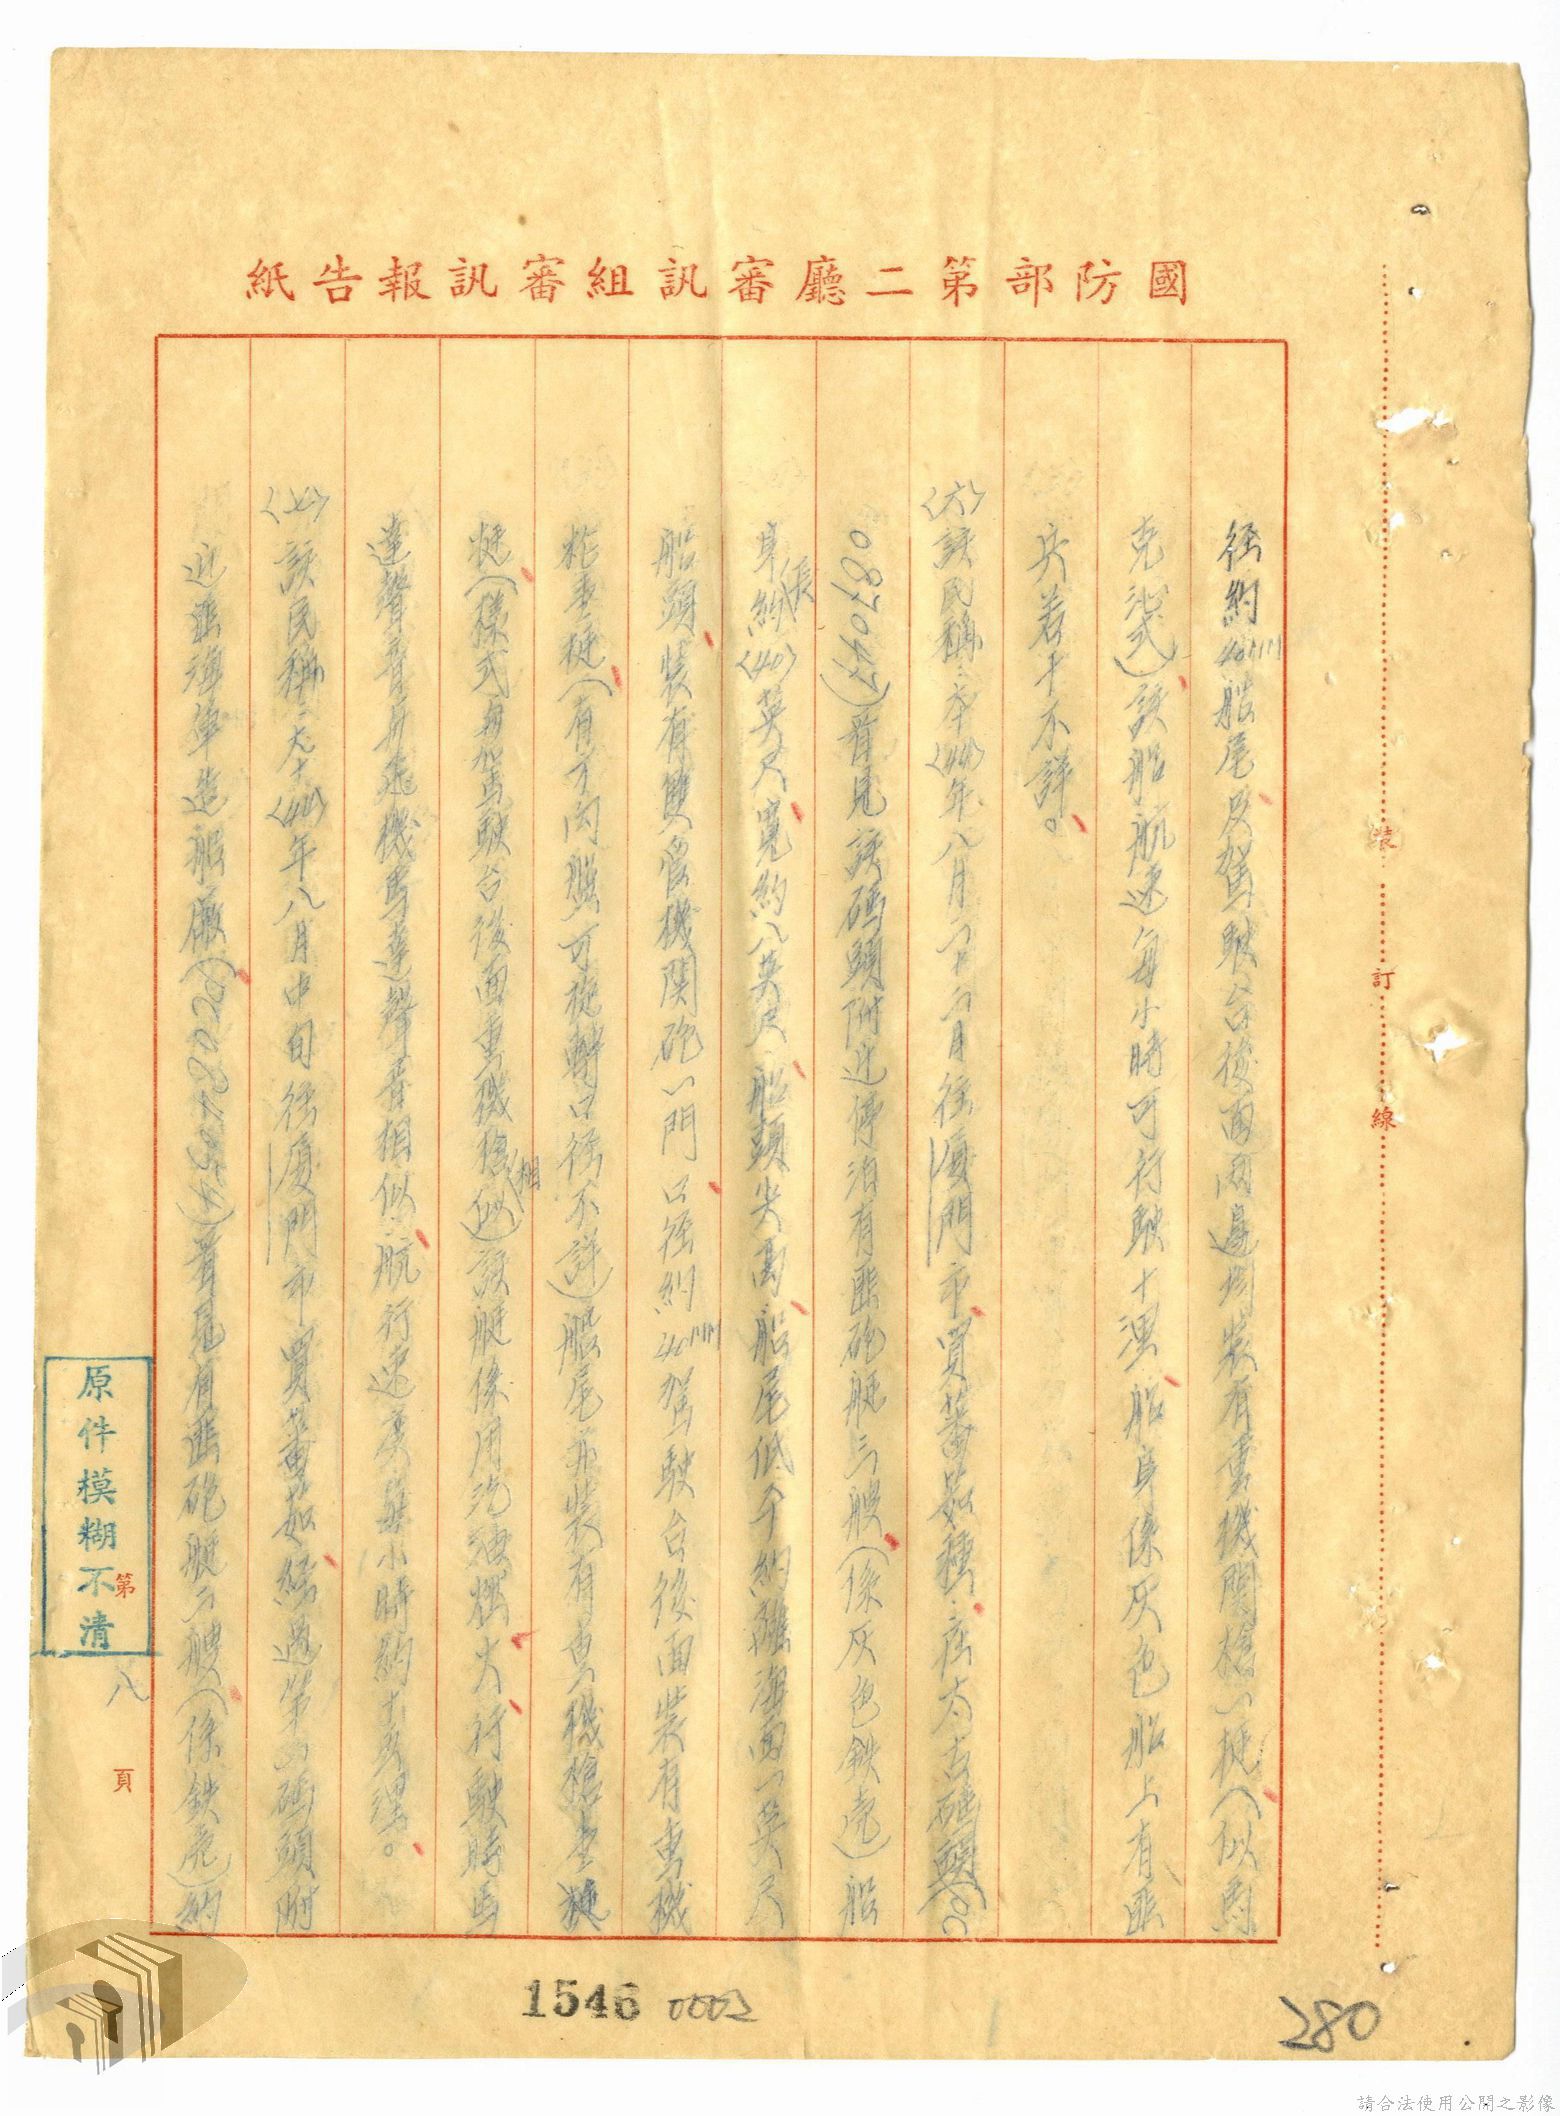 國防部第二廳審訊組審訊報告紙
徑約40MM船尾及駕駛台後面兩邊均裝有重機関槍一挺(似馬
克沁式)該船航速每小時可行駛十浬船身係灰色船上有匪
兵若干不詳。
〈六〉該民稱:本〈44〉年八月 月往廈門市買蕃茹種:店太古碼頭(OC
087047)看見該碼頭附近停泊有匪砲艇三艘(係灰色鉄壳)船
身長約〈40〉英尺寬約八英尺船頭尖高船尾低 約離海面一英尺
船頭裝有雙管機関砲一門口徑約40MM駕駛台後面裝有重機
枪壹挺(有 可旋轉口徑不詳)船尾並裝有重機槍壹挺
挺(樣式與駕駛台後面重機槍相似)該艇係用汽油 行駛時馬
達聲音與飛機馬達聲音相似航行速度每小時約十 浬。
〈七〉該民稱:九 〈44〉年八月中旬往廈門市買蕃茹經過第一碼頭附
近匪海軍造船廠( )看見有匪砲艇二艘(係鉄壳)約
裝訂線
原件模糊不清
第八頁
1546 0002
280
請合法使用公開之影像